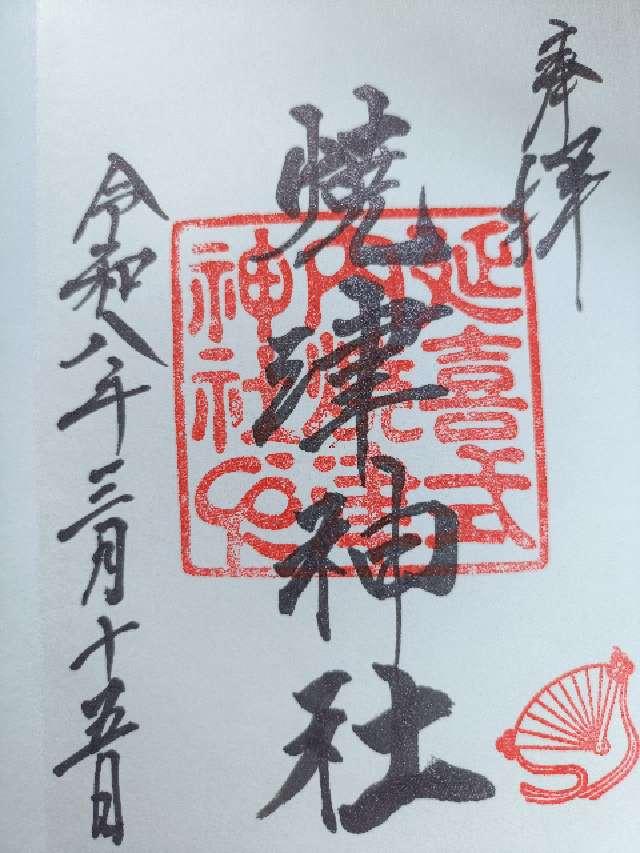 奉拝
焼津神社
延喜式
内焼津
神社
令和八年三月十五日